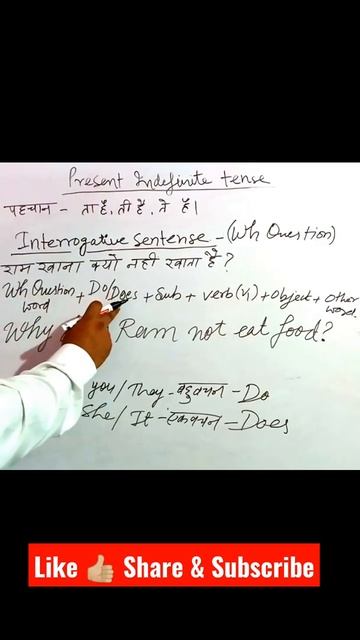 Present Indefinite tense
पहचान - ता है, ती है, ते हैं।
Interrogative sentense - (Wh Question)
राम खाना क्यो नही खाता है?
Wh Question word + Do/Does + Sub + verb(V1) + Object + Other word
Why Ram not eat food?
you/They - बहुवचन - Do
She/It - एकवचन - Does
Like 👍🏼 Share & Subscribe